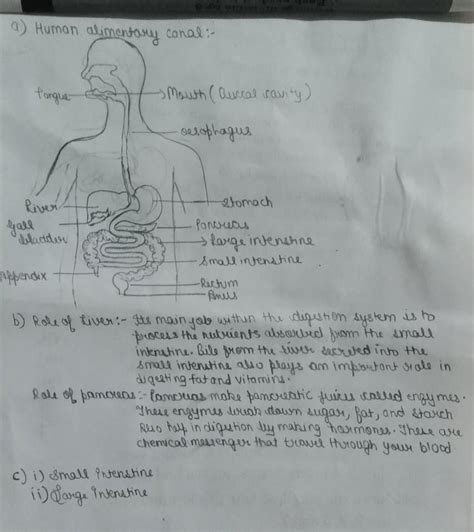 a) Human alimentary canal:-
Tongue
Mouth (Buccal cavity)
oesophagus
Liver
Stomach
Gall bladder
Pancreas
large intenstine
Small intenstine
Appendix
Rectum
Anus
b) Role of liver:- Its main job within the digstion system is to
process the nutrients absorbed from the small
intenstine. Bile from the liver secreted into the
small intenstine also plays an important role in
digesting fat and vitamins.
Role of pancreas:- Pancreas make pancreatic juices called enzymes.
These enzymes break down sugar, fat, and starch
Also help in digestion by making harmones. These are
chemical messenger that travel through your blood.
c) i) Small Intenstine
ii) Large Intenstine